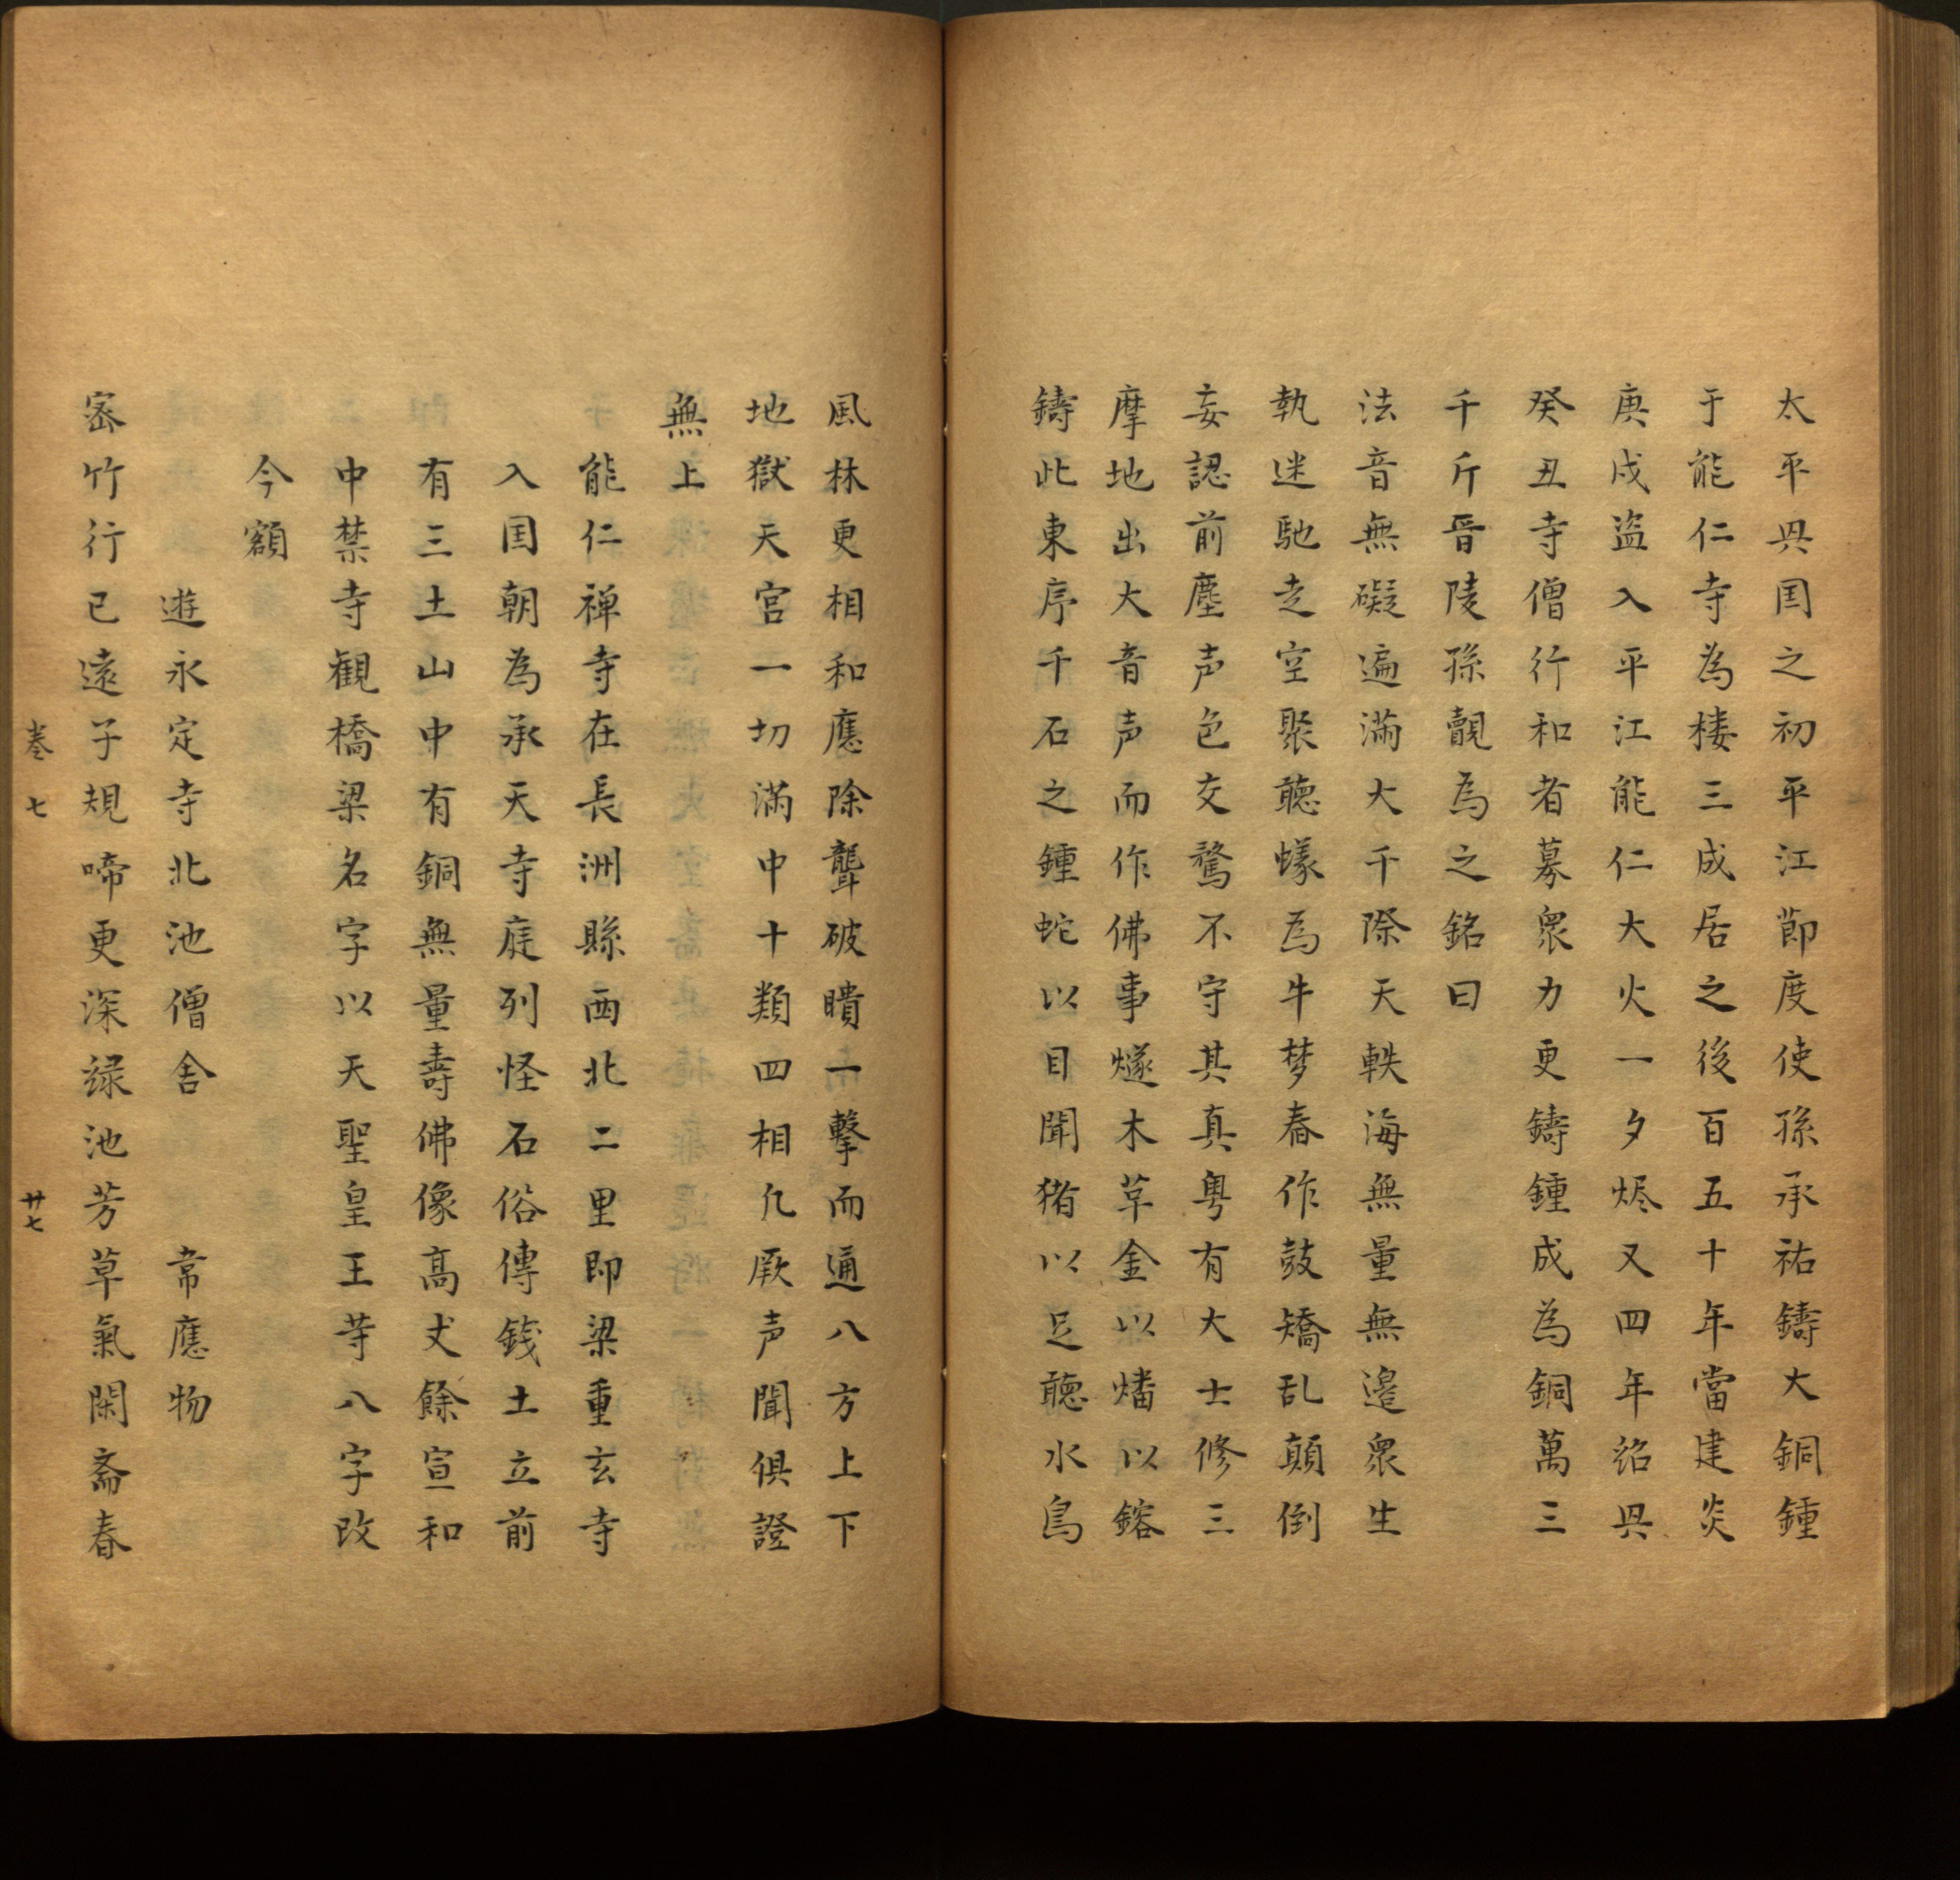 太平興国之初平江節度使孫承祐鋳大銅鍾
于能仁寺為楼三成居之後百五十年當建炎
庚戌盗入平江能仁大火一夕烬又四年紹興
癸丑寺僧行和者募衆力更鋳鍾成為銅萬三
千斤晋陵孫覿為之銘曰
法音無礙遍滿大千際天軼海無量無邉衆生
執迷馳走空聚聴蟻為牛梦舂作鼓矯乱顛倒
妄認前塵声色交鶩不守其真粤有大士修三
摩地出大音声而作佛事燧木草金以燔以鎔
鋳此東序千石之鍾蛇以目聞猪以足聴水鳥
風林更相和應除聾破瞶一擊而通八方上下
地獄天宫一切滿中十類四相凡厥声聞俱證
無上
能仁禅寺在長洲縣西北二里即梁重玄寺
入国朝為承天寺庭列怪石俗傳錢土立前
有三土山中有銅無量壽佛像高丈餘宣和
中禁寺観橋梁名字以天聖皇王等八字改
今額
遊永定寺北池僧舍　常應物
宻竹行已遠子規啼更深緑池芳草氣閑斎春
卷七　廿七